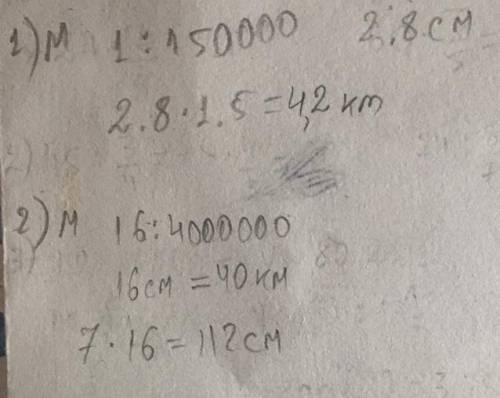 1) М 1:150000 2.8 см
2.8·1.5=4,2 км
2) М 16:4000000
16см =40 км
7·16=112 см